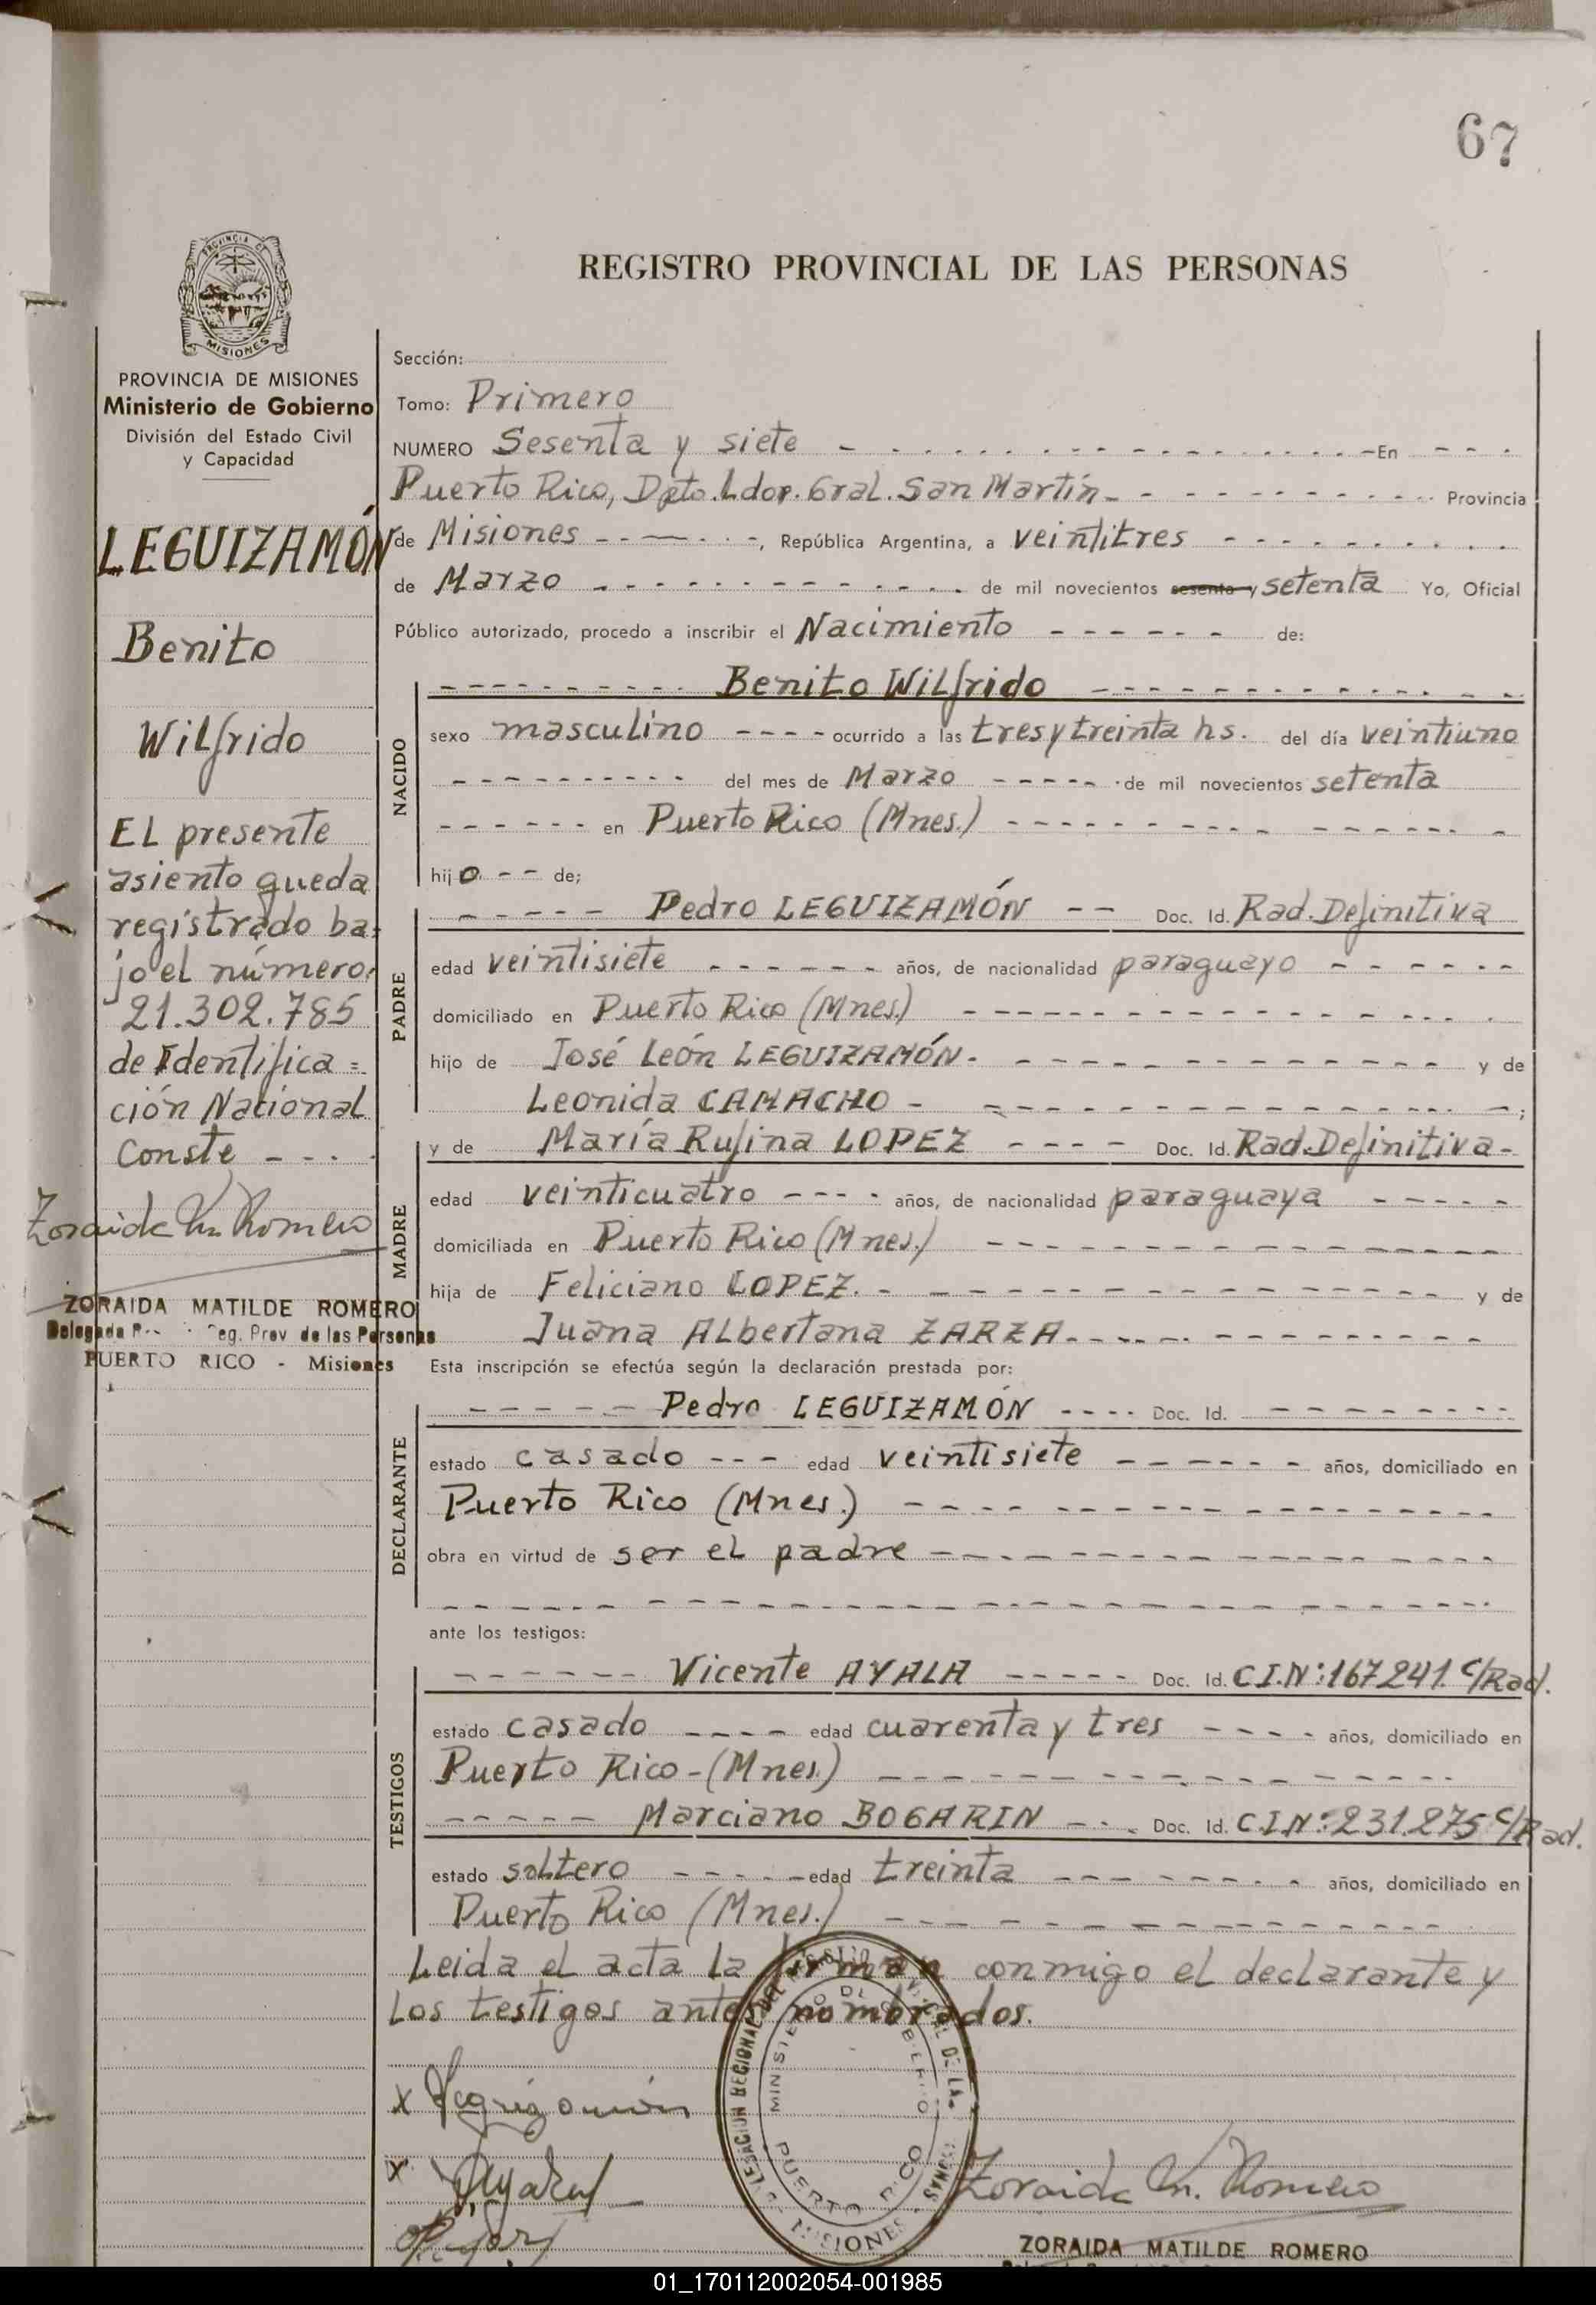 67
REGISTRO PROVINCIAL DE LAS PERSONAS
MISIONES
PROVINCIA DE MISIONES
Ministerio de Gobierno
División del Estado Civil
y Capacidad
LEGUIZAMÓN
Benito
Wilfrido
EL presente
asiento queda
registrado ba-
jo el número
21.302.785
de Identifica=
ción Nacional
Conste - - -
Zoraida M. Romero
ZORAIDA MATILDE ROMERO
Delegada Reg. Prov de las Personas
PUERTO RICO - Misiones
Sección:
Tomo: Primero
NUMERO Sesenta y siete - En
Puerto Rico, Dpto. Ldor. Gral. San Martín - Provincia
de Misiones - , República Argentina, a veintitres
de Marzo - de mil novecientos sesenta y setenta Yo, Oficial
Público autorizado, procedo a inscribir el Nacimiento - de:
NACIDO
Benito Wilfrido
sexo masculino - ocurrido a las tres y treinta hs. del día veintiuno
del mes de Marzo - de mil novecientos setenta
en Puerto Rico (Mnes.)
hijo - - de;
PADRE
Pedro LEGUIZAMÓN - - Doc. Id. Rad. Definitiva
edad veintisiete - años, de nacionalidad paraguayo
domiciliado en Puerto Rico (Mnes.)
hijo de José León LEGUIZAMÓN - y de
Leonida CAMACHO - ;
MADRE
y de María Rufina LOPEZ - Doc. Id. Rad. Definitiva -
edad veinticuatro - años, de nacionalidad paraguaya
domiciliada en Puerto Rico (Mnes.)
hija de Feliciano LOPEZ. - y de
Juana ALbertana ZARZA.
Esta inscripción se efectúa según la declaración prestada por:
DECLARANTE
Pedro LEGUIZAMÓN - Doc. Id.
estado casado - edad veintisiete - años, domiciliado en
Puerto Rico (Mnes.)
obra en virtud de ser el padre
ante los testigos:
TESTIGOS
Vicente AYALA - Doc. Id. C.I.Nº:167241. C/Rad.
estado casado - edad cuarenta y tres - años, domiciliado en
Puerto Rico - (Mnes.)
Marciano BOGARIN - Doc. Id. C.I.Nº:231.275 C/Rad.
estado soltero - edad treinta - años, domiciliado en
Puerto Rico (Mnes.)
Leida el acta la firman conmigo el declarante y
los testigos antes nombrados.
MINISTERIO DE GOBIERNO
PUERTO RICO
MISIONES
x Leguizamón
x Ayala
Zoraida M. Romero
ZORAIDA MATILDE ROMERO
01_170112002054-001985